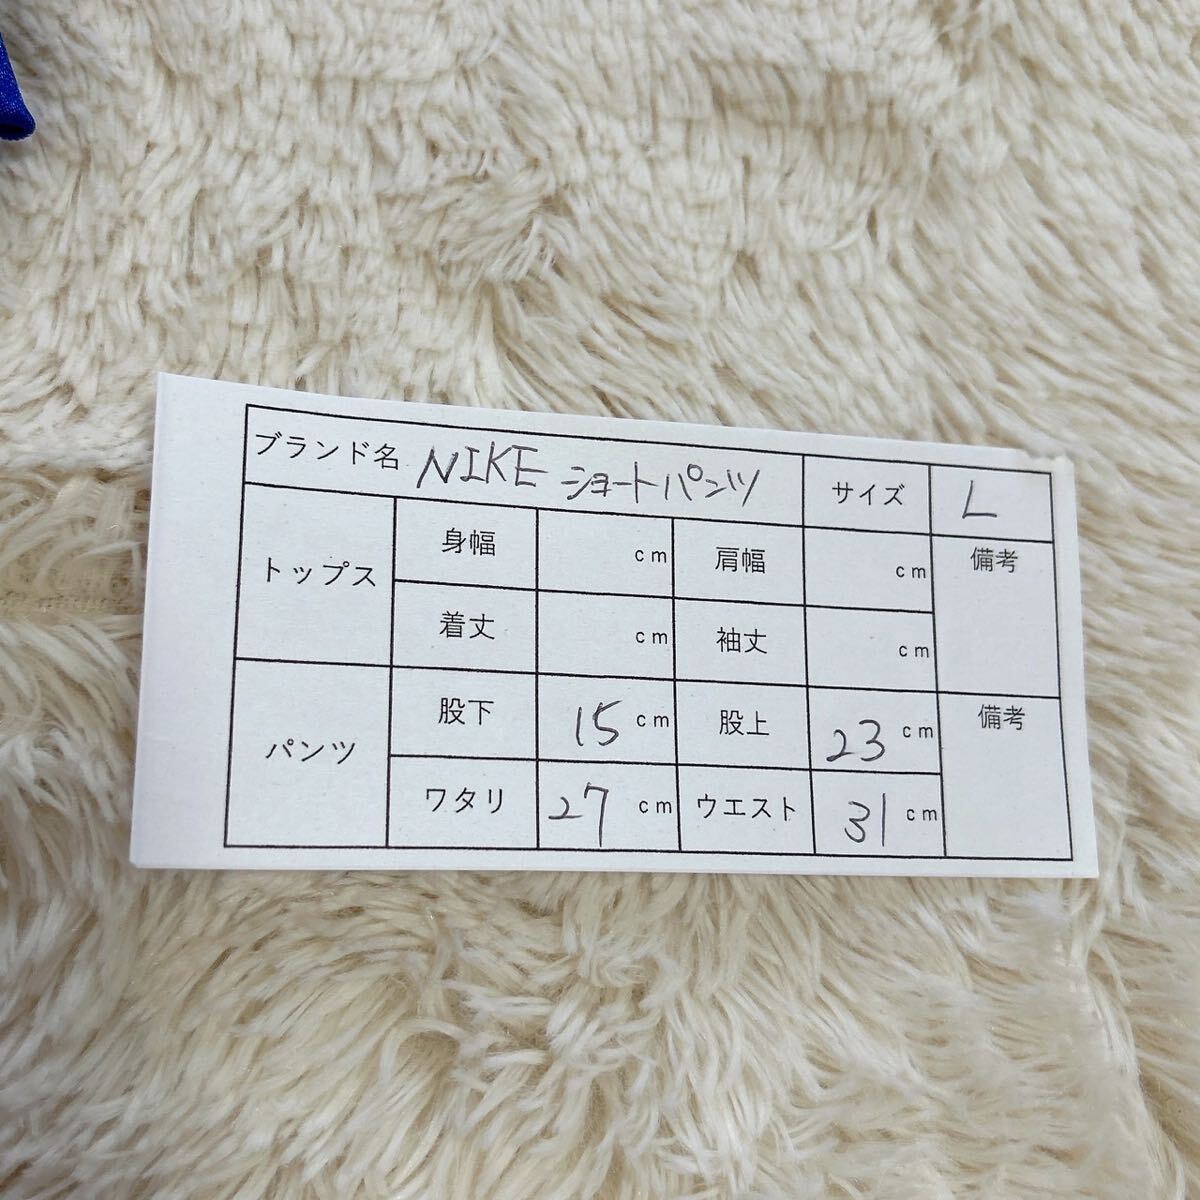 ブランド名 NIKE ショートパンツ サイズ L
トップス 身幅 cm 肩幅 cm 備考
着丈 cm 袖丈 cm
パンツ 股下 15 cm 股上 23 cm 備考
ワタリ 27 cm ウエスト 31 cm